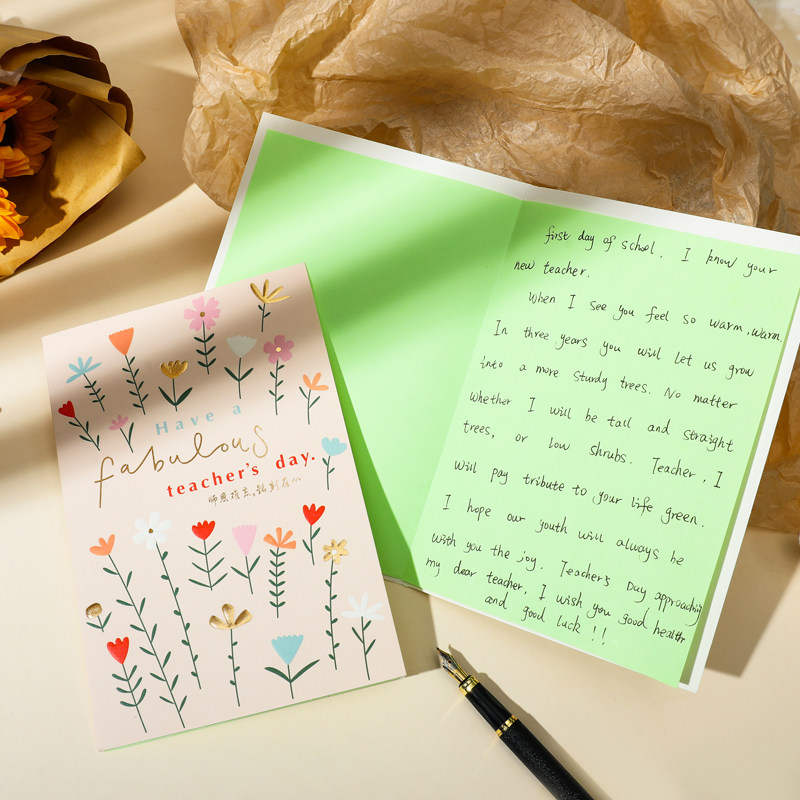 Have a
fabulous
teacher's day.
师恩难忘,铭刻在心
first day of school. I know your
new teacher.
When I see you feel so warm, warm.
In three years you will let us grow
into a more sturdy trees. No matter
whether I will be tall and straight
trees, or low shrubs. Teacher, I
will pay tribute to your life green.
I hope our youth will always be
with you the joy. Teacher's Day approaching
my dear teacher, I wish you good health
and good luck!!